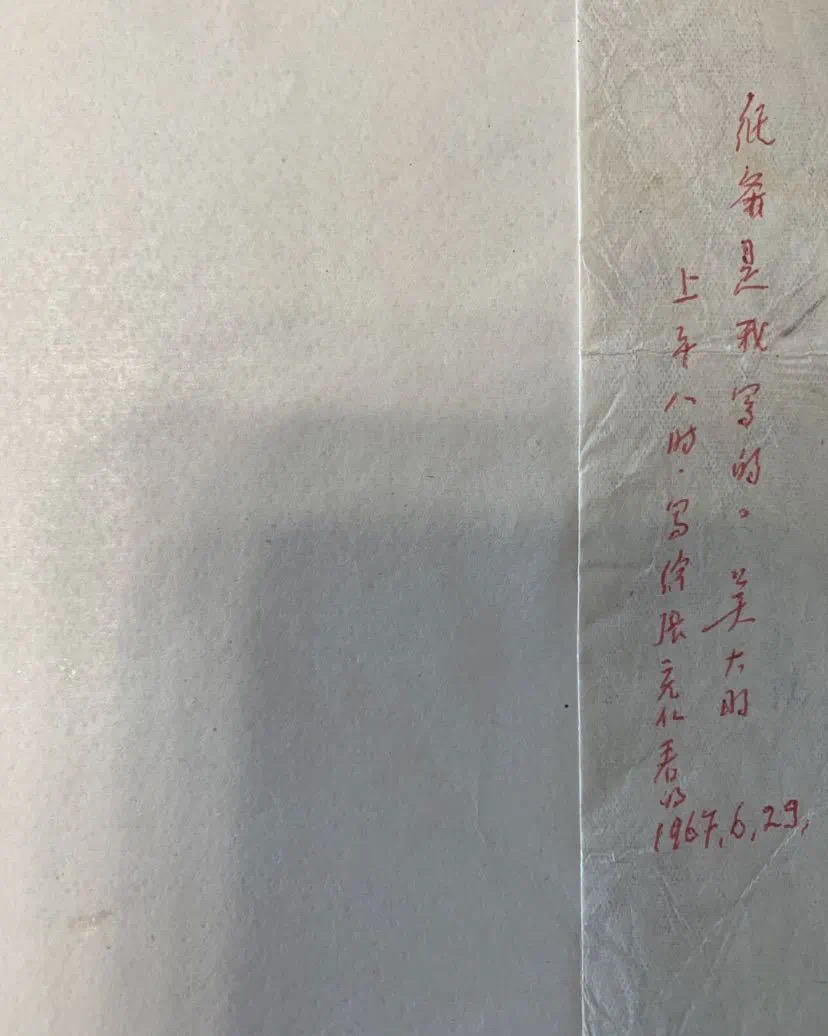 纸条是我写的。吴大明
上午八时.写给张充仁看的
1967.6.29.